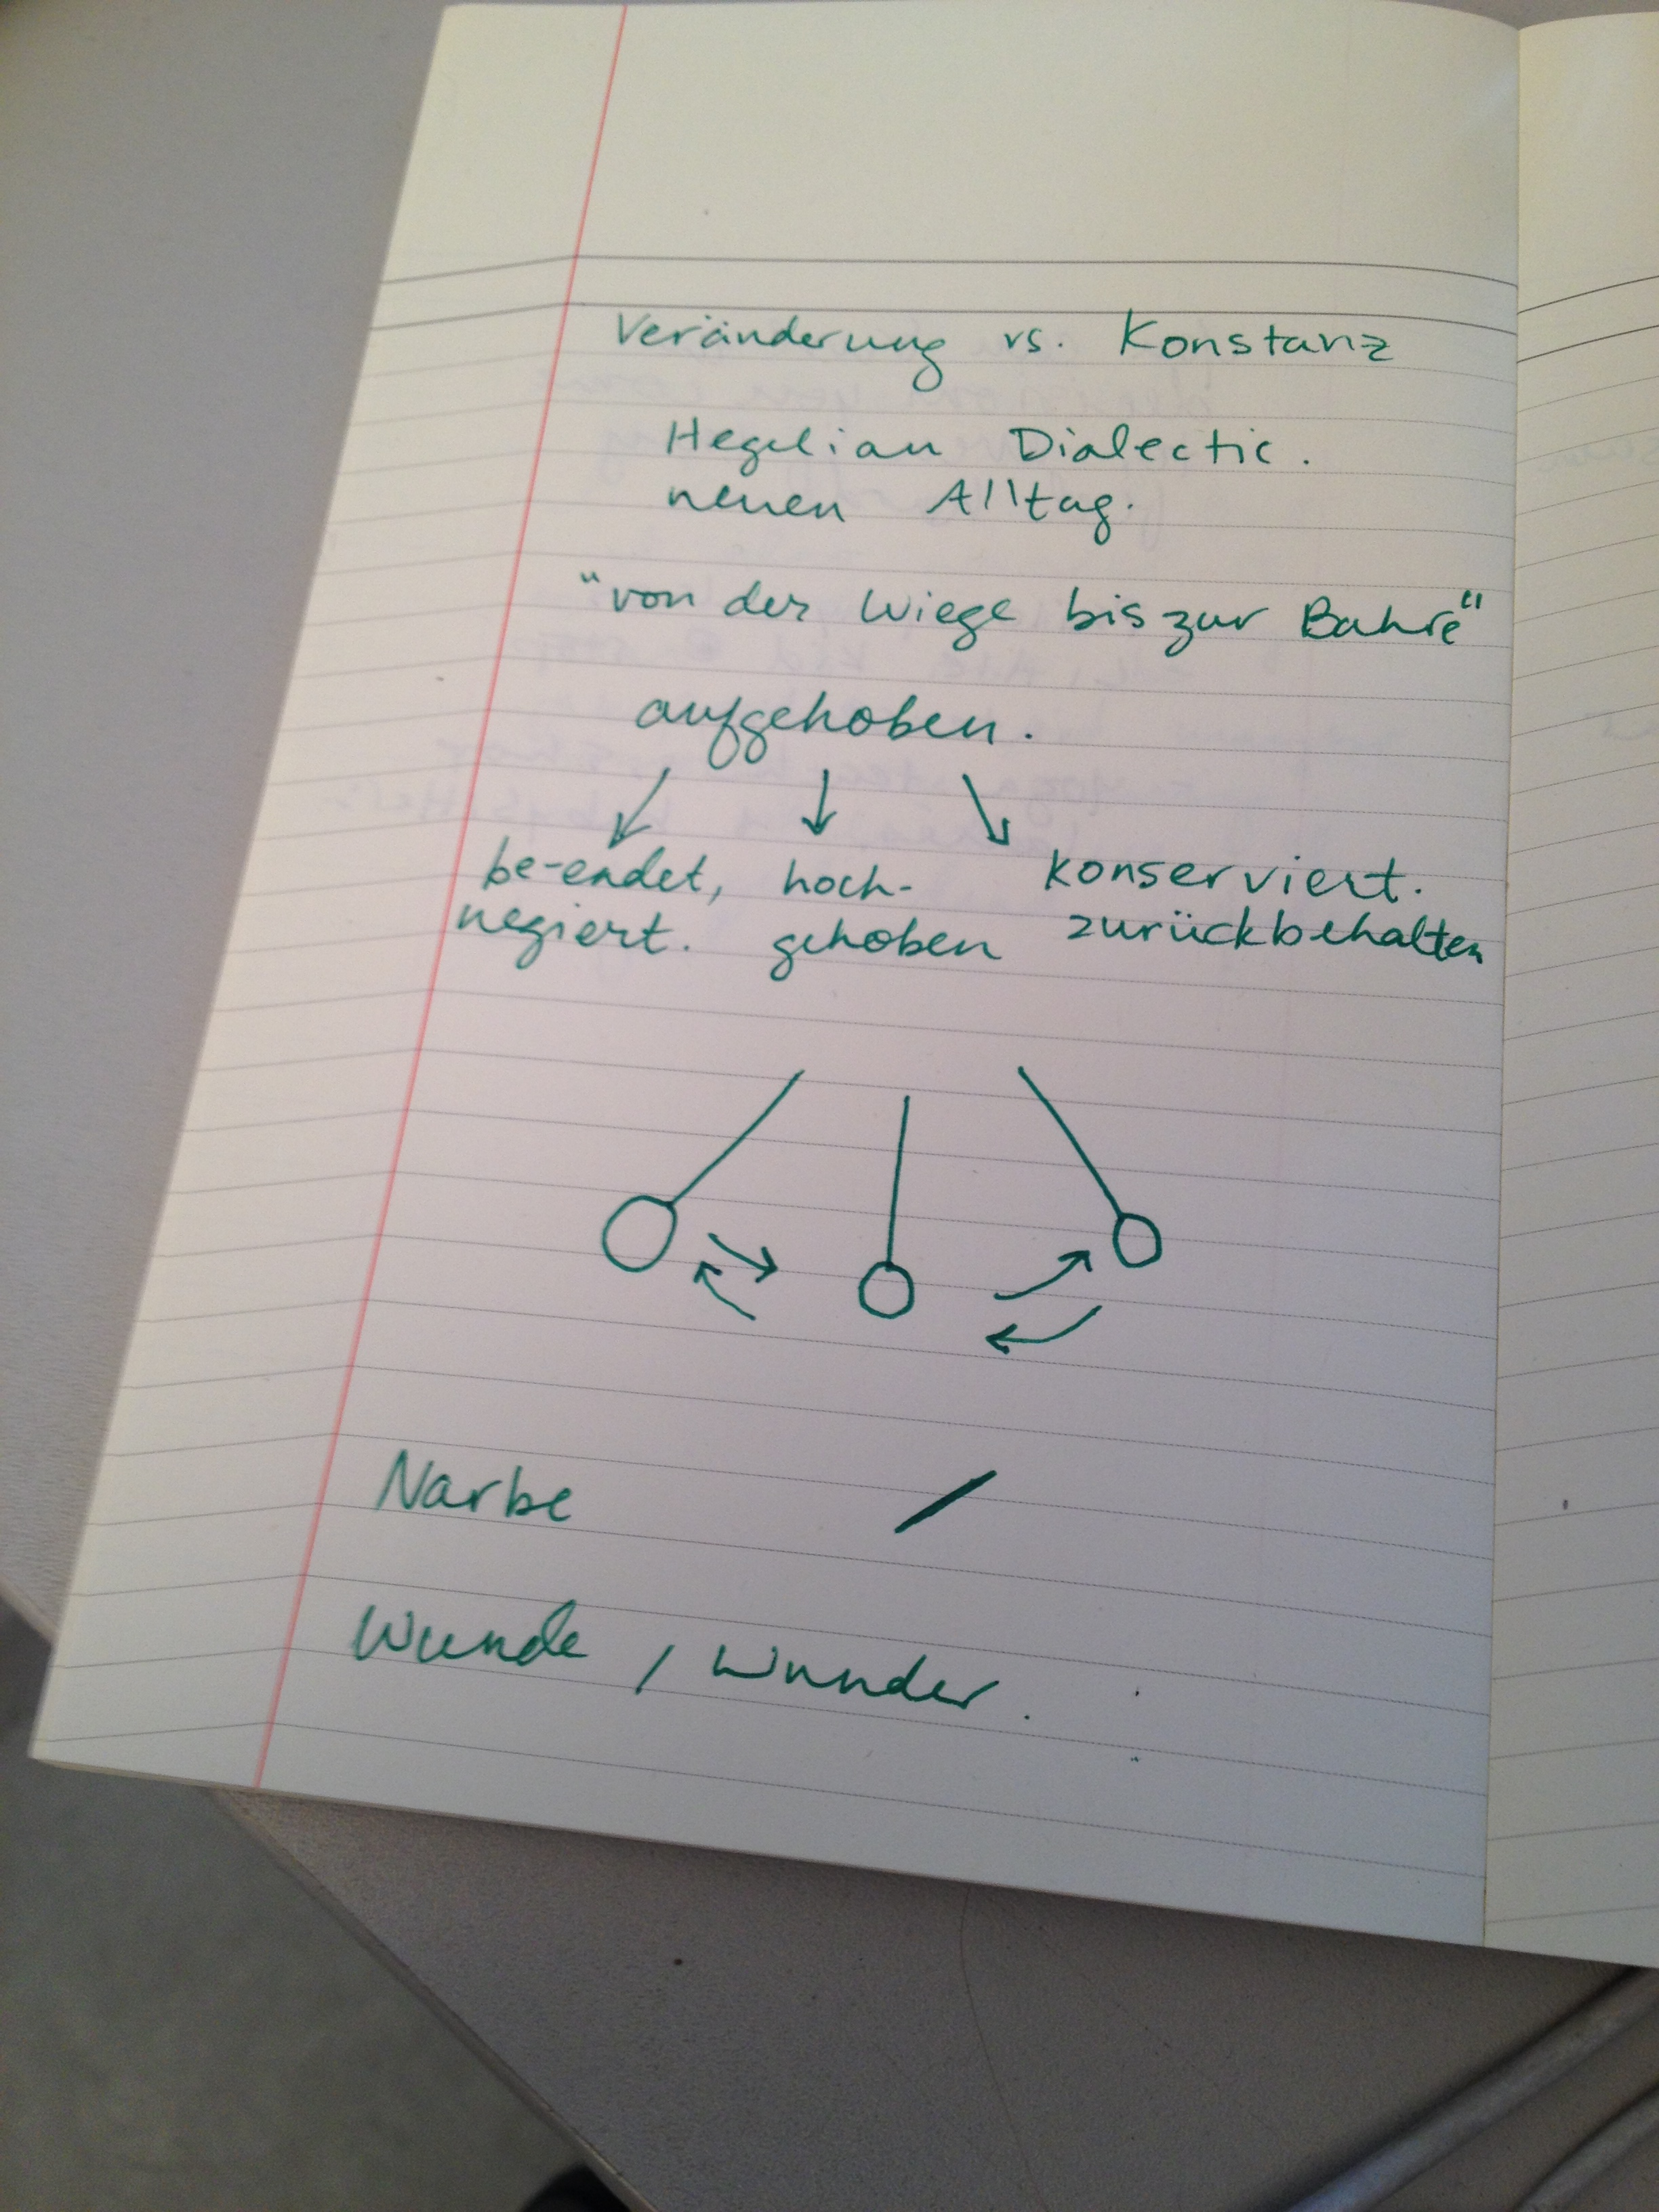 Veränderung vs. Konstanz
Hegelian Dialectic.
neuen Alltag.
"von der Wiege bis zur Bahre"
aufgehoben.
be-endet, hoch- konserviert.
negiert. gehoben zurückbehalten
Narbe
Wunde / Wunder.